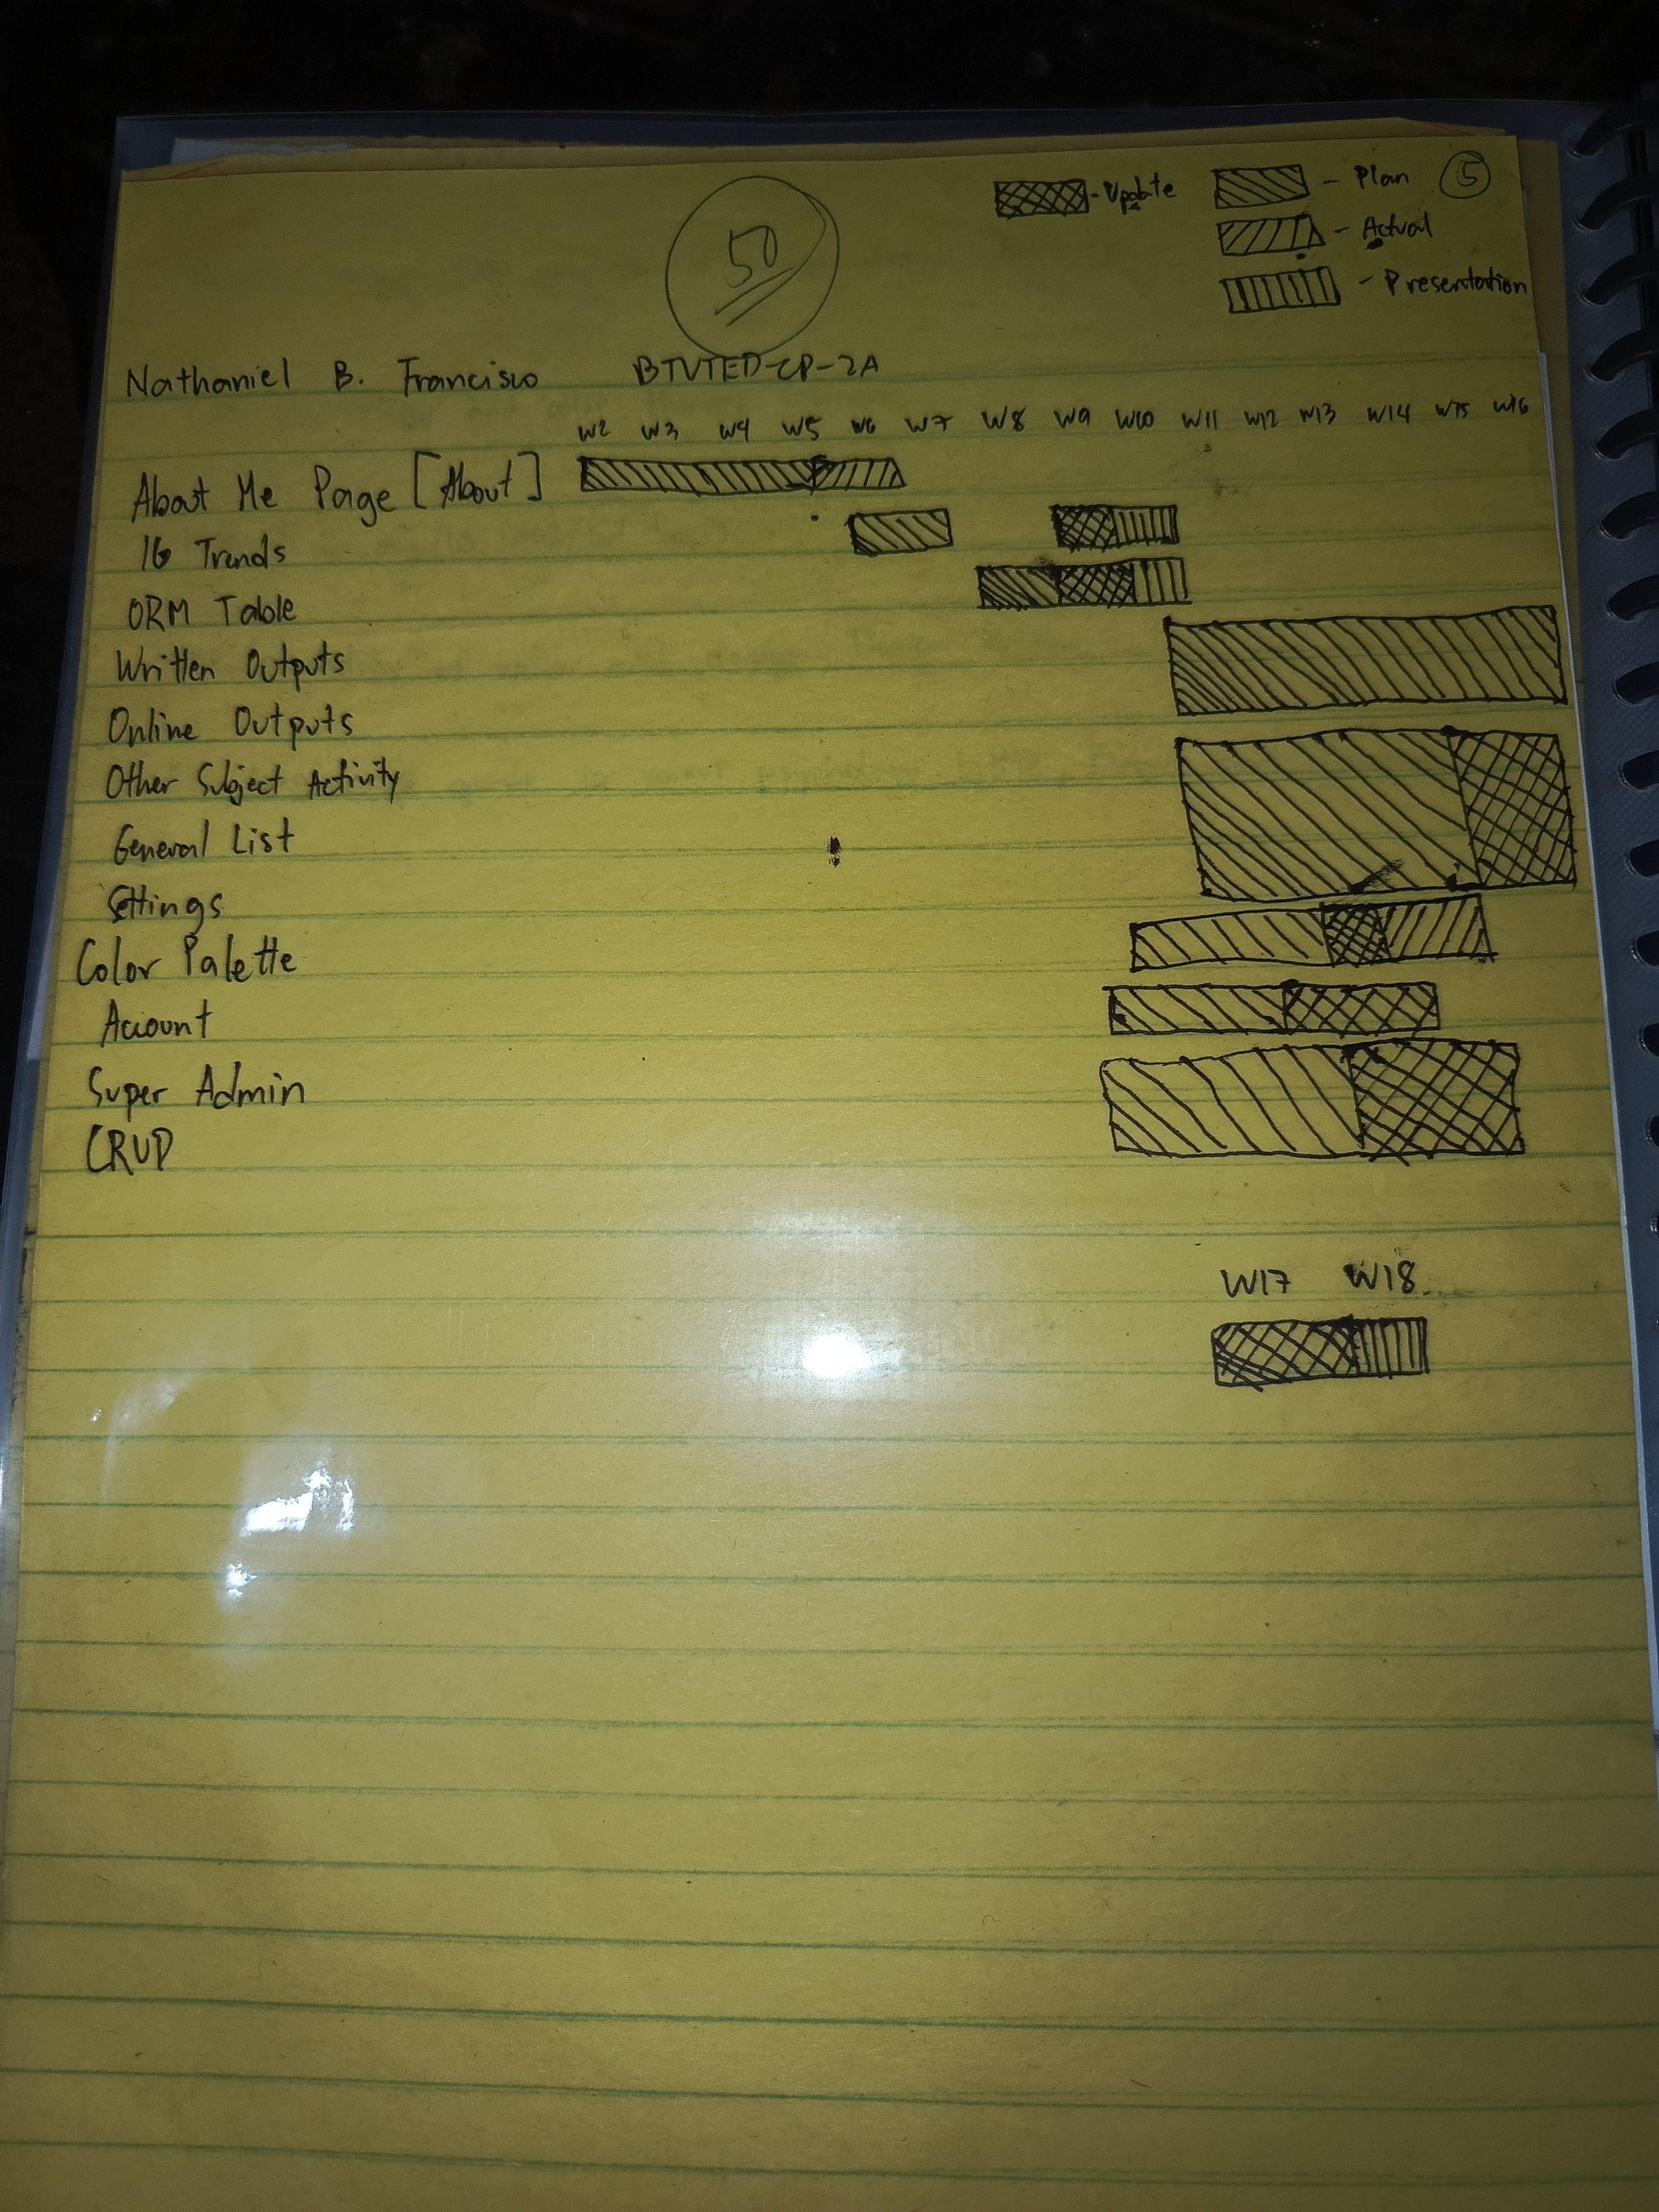 50
Update
Plan
5
Actual
Presentation
Nathaniel B. Francisco BTVTED-CP-2A
W2 W3 W4 W5 W6 W7 W8 W9 W10 W11 W12 W13 W14 W15 W16
About Me Page [About]
16 Trends
ORM Table
Written Outputs
Online Outputs
Other Subject Activity
General List
Settings
Color Palette
Account
Super Admin
CRUD
W17 W18